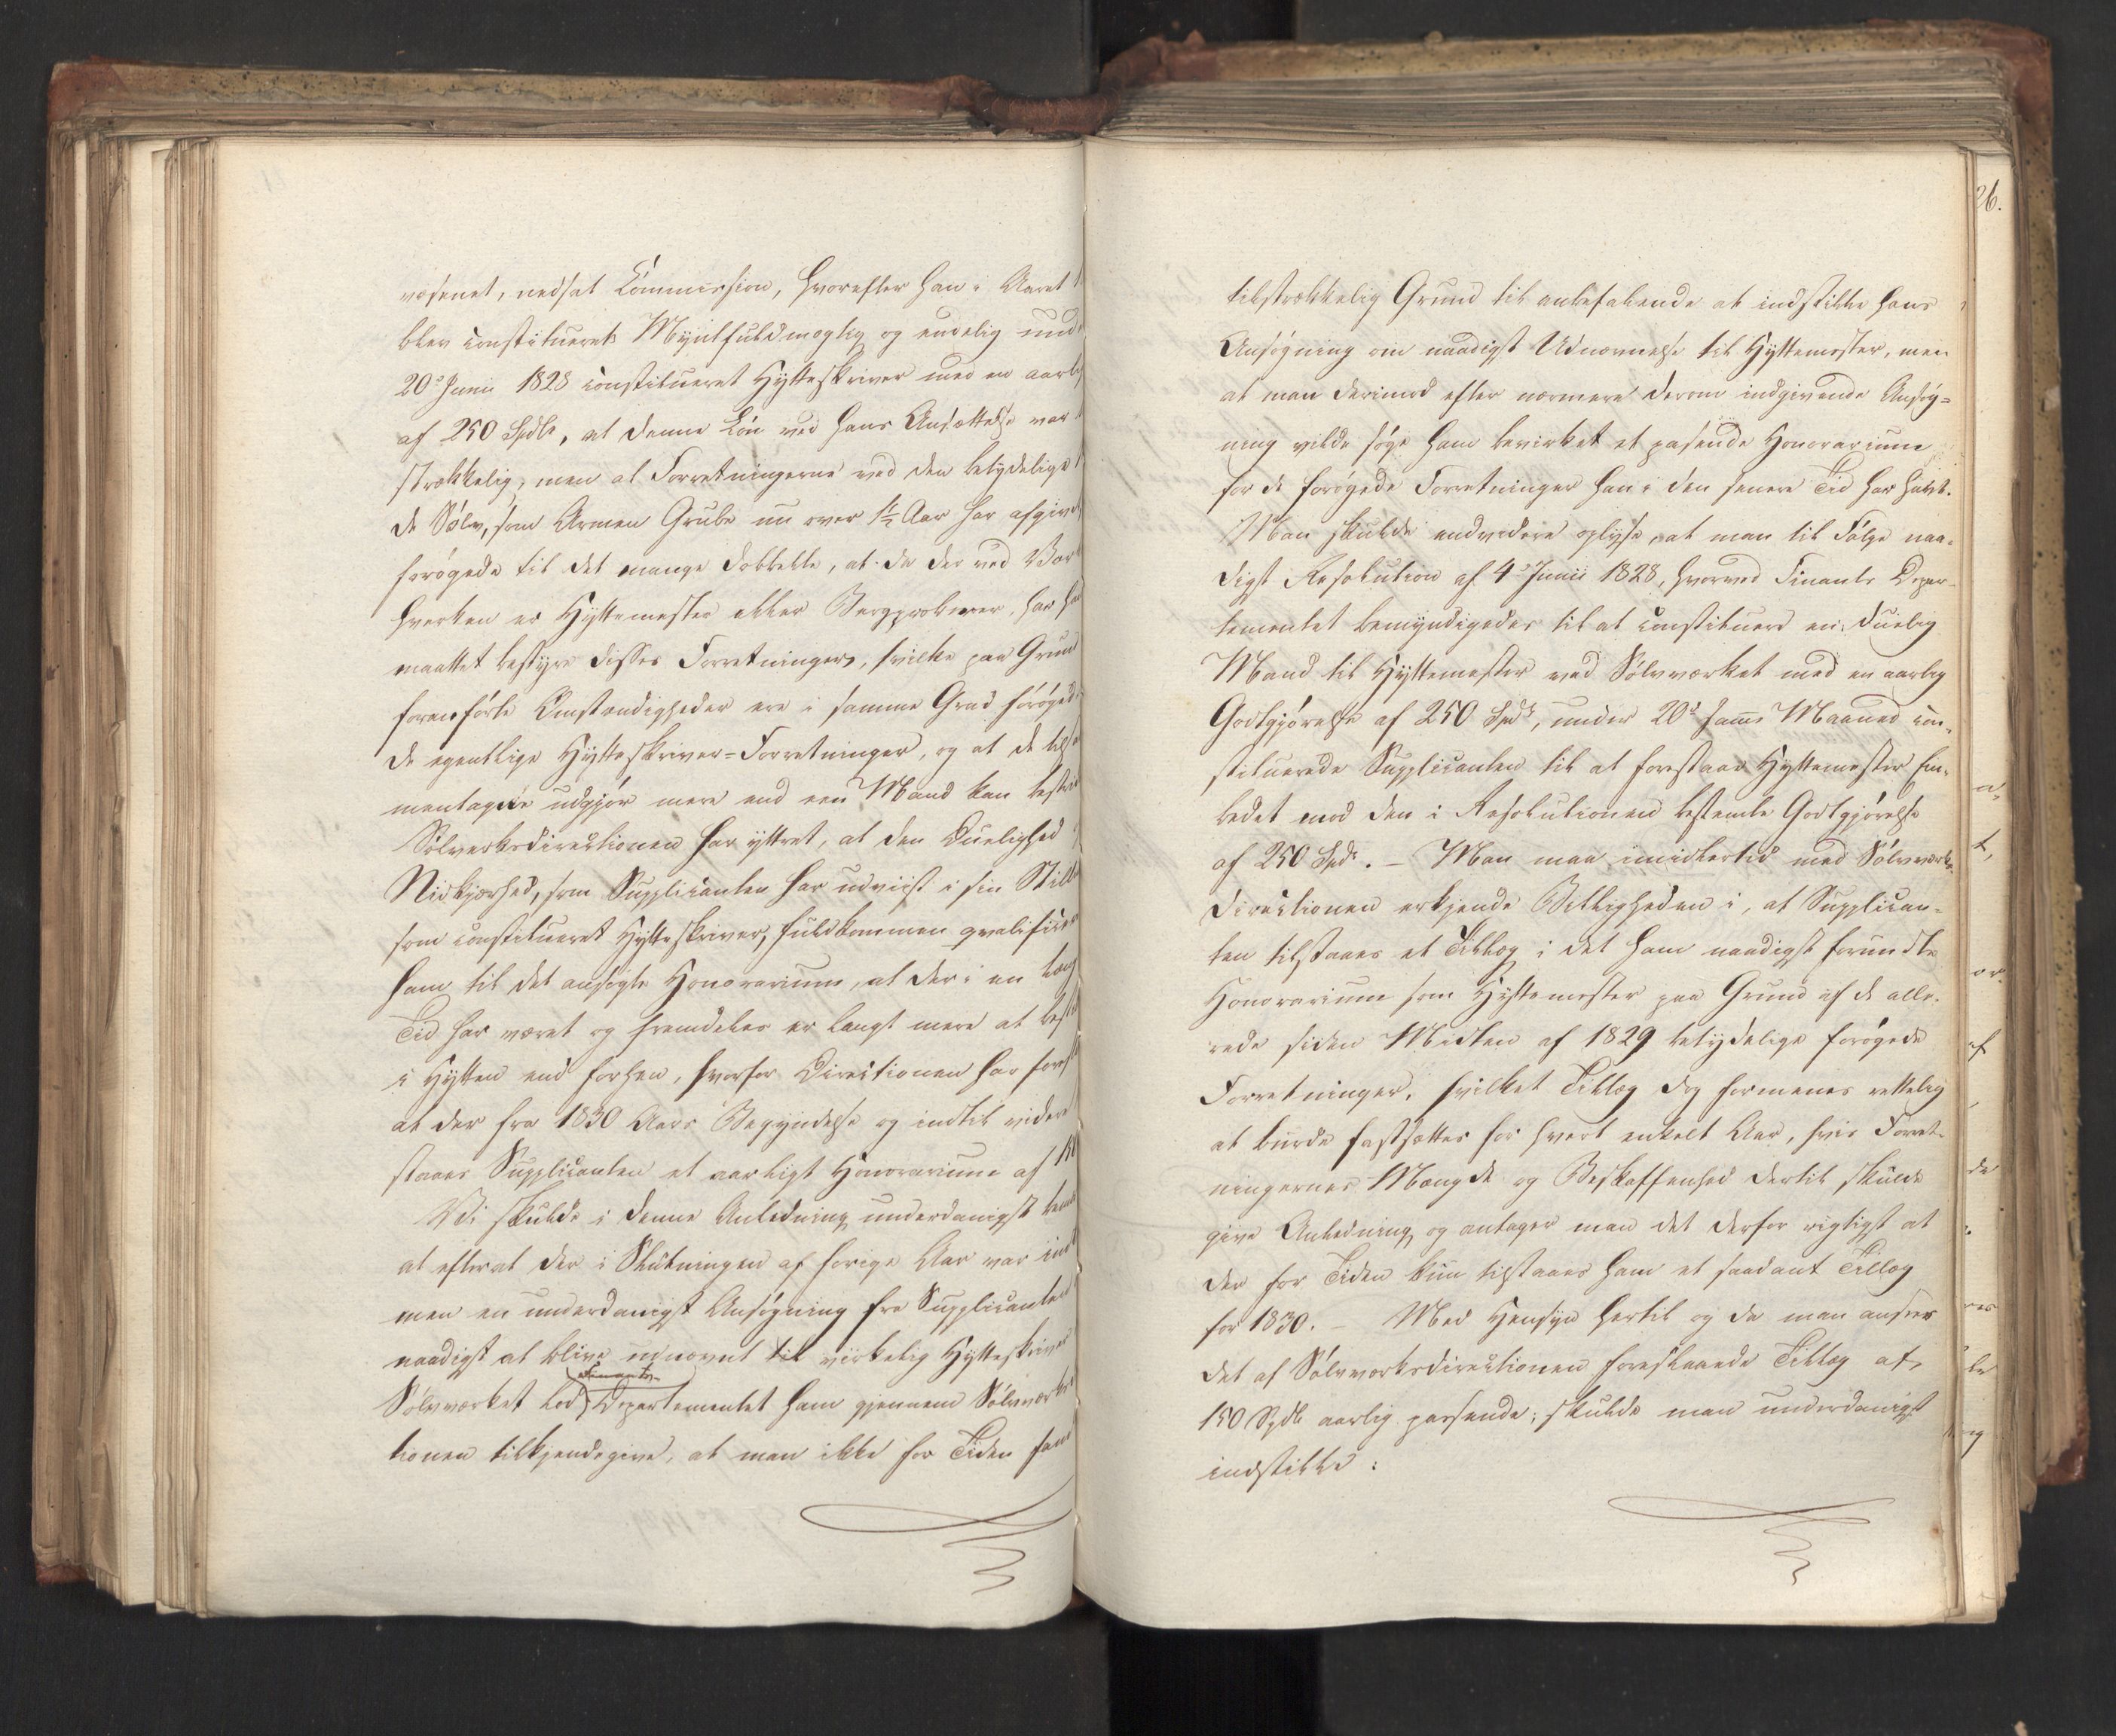 væsenet, nedsat Commission, hvorefter han i Aaret
blev constitueret Myntfuldmægtig og endelig und
20de Junii 1828 constitueret Hytteskriver med en aarlig
af 250 Spdlr, at denne Løn ved hans Ansættelse var
strækkelig, men at Forretningerne ved den betydelige
de Sølv, som Armen Grube nu over 1½ Aar har afgivet
forøgede til det mange dobbelte, at da der ved Vær
hverken er Hyttemester eller Bergprobeerer, har han
maattet bestyre disses Forretninger, hvilke paa Grund
foranførte Omstændigheder ere i samme Grad forøgede
de egentlige Hytteskriver-Forretninger, og at de tilsa
mentagne udgjør mere end een Mand kan bestride
Sølverksdirectionen har yttret, at den Duelighed
Nidkjærhed, som Supplicanten har udviist i sin Still
som constitueret Hytteskriver, fuldkommen qvalificerer
ham til det ansøgte Honorarium, at der i en lang
Tid har været og fremdeles er langt mere at bestille
i Hytten end forhen, hvorfor Directionen har fores
at der fra 1830 Aars Begyndelse og indtil videre
staaes Supplicanten et aarligt Honorarium af 150
Vi skulde i denne Anledning underdanigst bem
at efterat der i Slutningen af forrige Aar var ind
men en underdanigst Ansøgning fra Supplicanten
naadigst at blive udnævnt til virkelig Hytteskriver
Finants-
Sølvværket lod Departementet ham gjennem Sølvværks
tionen tilkjendegive, at man ikke for Tiden fand
26.
tilstrækkelig Grund til anbefalende at indstille hans
Ansøgning om naadigst Udnævnelse til Hyttemester, men
at man derimod efter nærmere derom indgivende Ansøg-
ning vilde søge ham bevirket et passende Honorarium
for de forøgede Forretninger han i den senere Tid har havt.
Man skulde endvidere oplyse, at man til Følge naa-
digst Resolution af 4de Junii 1828, hvorved Finants Depar-
tementet bemyndigedes til at constituere en duelig
Mand til Hyttemester ved Sølvværket med en aarlig
Godtgjørelse af 250 Spdr, under 20de samme Maaned con-
stituerede Supplicanten til at forestaae Hyttemester Em-
bedet mod den i Resolutionen bestemte Godtgjørelse
af 250 Spdr. – Man maa imidlertid med Sølvværks-
directionen erkjende Billigheden i, at Supplican-
ten tilstaaes et Tillæg i det ham naadigst forundte
Honorarium som Hyttemester paa Grund af de alle-
rede siden Midten af 1829 betydelige forøgede
Forretninger, hvilket Tillæg dog formenes rettelig
at burde fastsættes for hvert enkelt Aar, hvis Forret-
ningernes Mængde og Beskaffenhed dertil skulde
give Anledning, og antager man det derfor rigtigst at
der for Tiden kun tilstaaes ham et saadant Tillæg
for 1830. – Med Hensyn hertil og da man anseer
det af Sølvværksdirectionen foreslaaede Tillæg af
150 Spdlr aarlig passende; skulde man underdanigst
indstille: